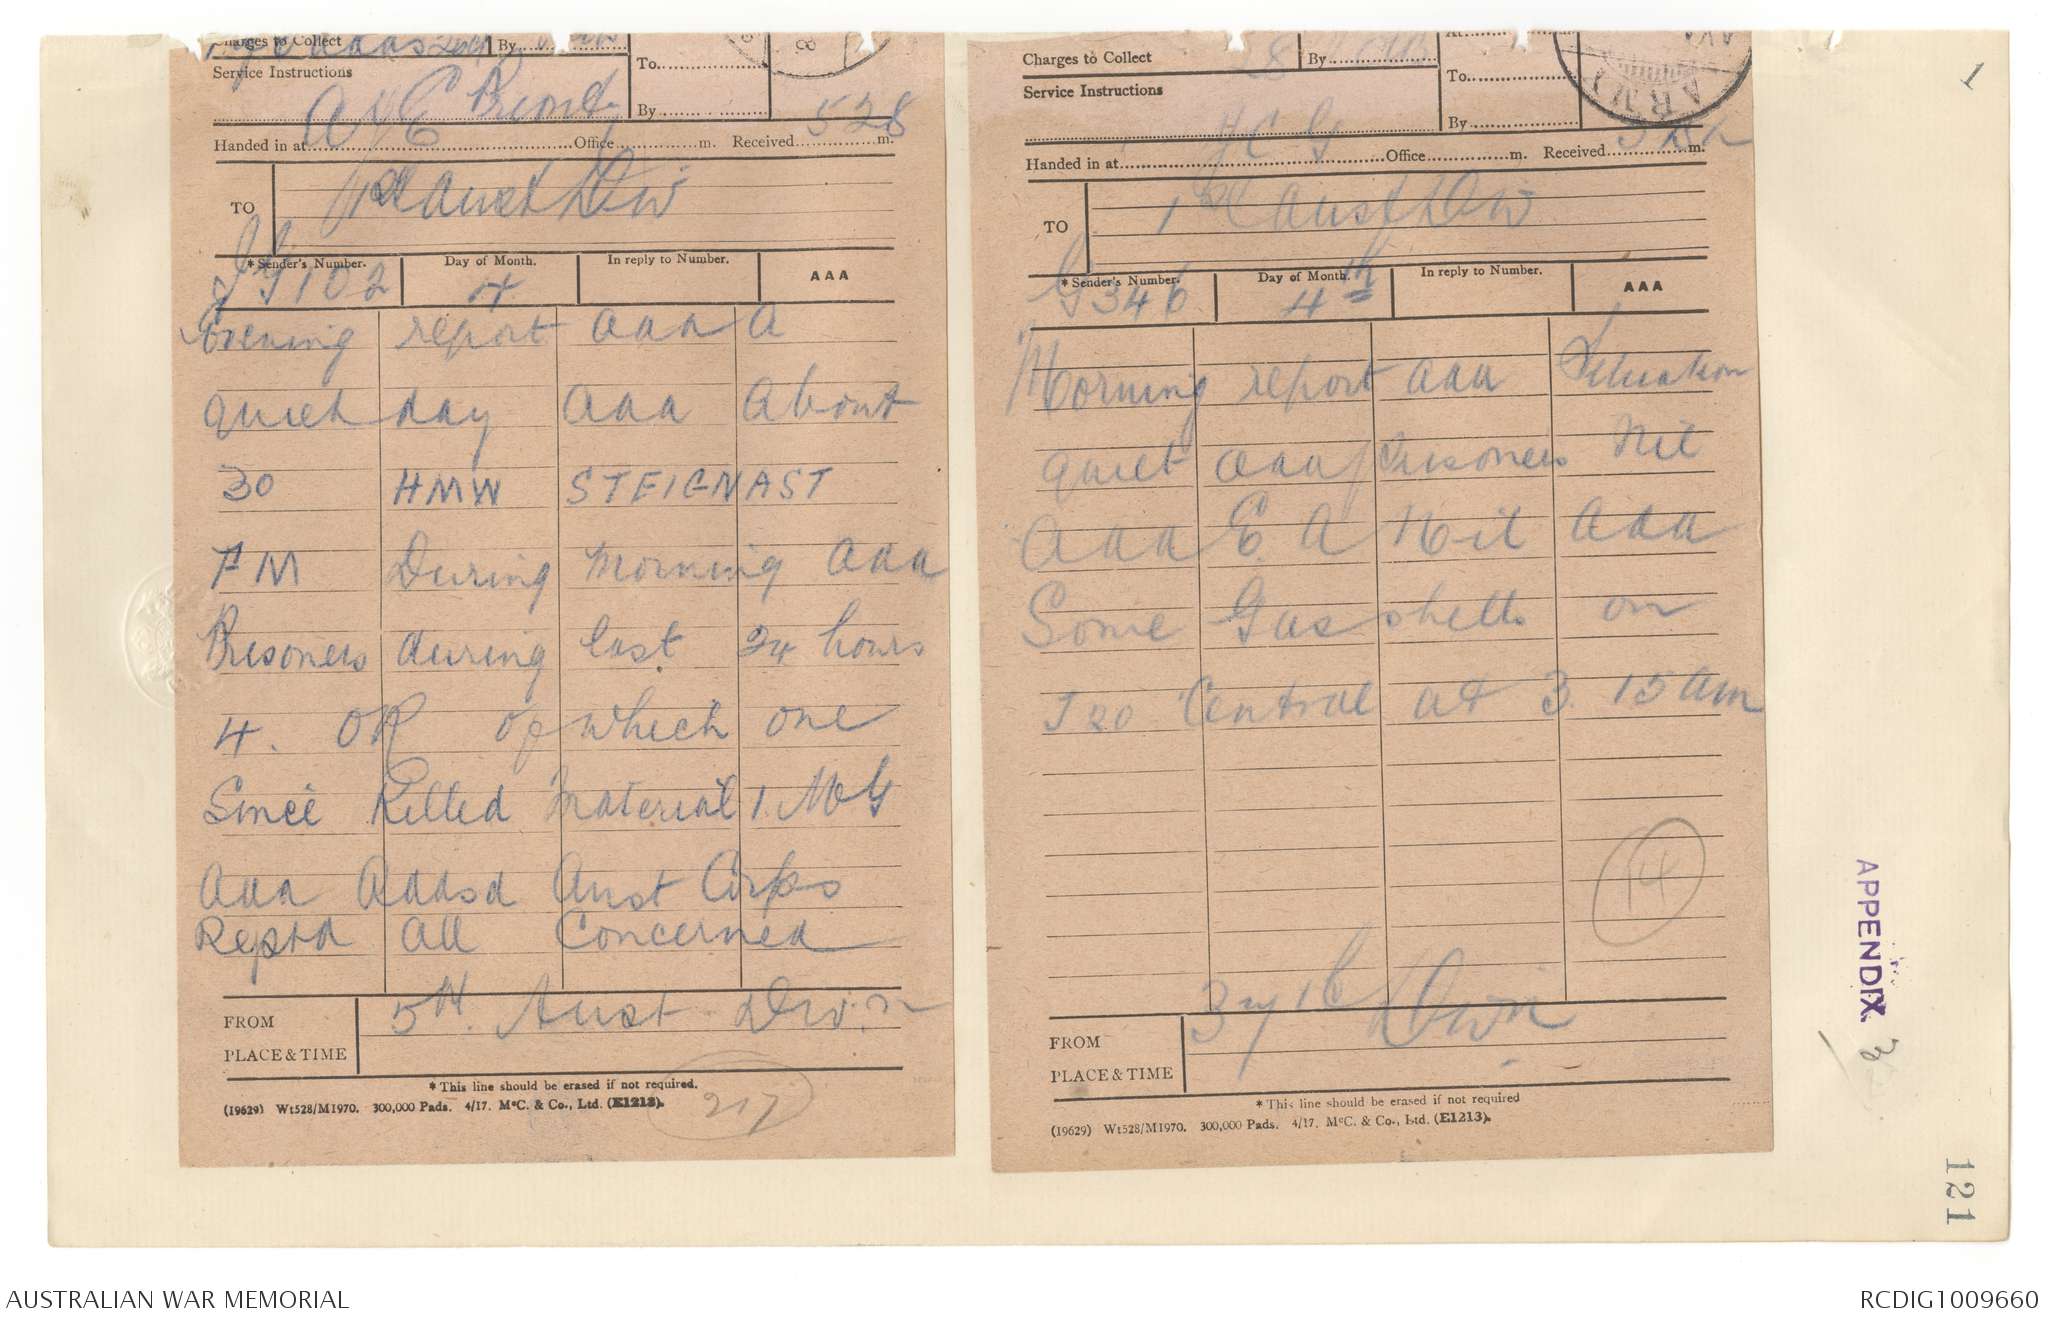 Charges to Collect
By
Service Instructions
Priority
To
By
528
Handed in at Office m. Received m.
TO
1st Aust Div
*Sender's Number. Day of Month. In reply to Number. AAA
102 4
Evening report aaa A
quiet day aaa About
30 HMW STEIGNAST
FM During morning aaa
Prisoners during last 24 hours
4. OR of which one
Since Killed Material 1 MG
Aaa Addsd Aust Corps
Reptd all Concerned
FROM
PLACE & TIME
5th. Aust Div.n
*This line should be erased if not required.
(19629) Wt528/M1970. 300,000 Pads. 4/17. McC. & Co., Ltd. (E1213).
217
Charges to Collect
By
Service Instructions
To
By
ARMY
Handed in at Office m. Received m.
TO
1st Aust Div
*Sender's Number. Day of Month. In reply to Number. AAA
G346 4th
Morning report aaa Situation
quiet aaa Prisoners Nil
Aaa E.A Nil Aaa
Some Gas shells on
J20 Central at 3.15 am
14
FROM
PLACE & TIME
37th Divn
*This line should be erased if not required
(19629) Wt528/M1970. 300,000 Pads. 4/17. McC. & Co., Ltd. (E1213).
1
APPENDIX
3
121
AUSTRALIAN WAR MEMORIAL
RCDIG1009660